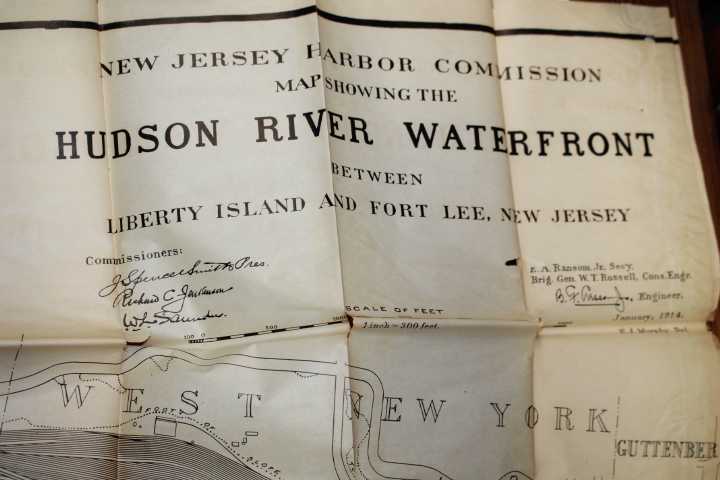 NEW JERSEY HARBOR COMMISSION
MAP SHOWING THE
HUDSON RIVER WATERFRONT
BETWEEN
LIBERTY ISLAND AND FORT LEE, NEW JERSEY
Commissioners:
J Spencer Smith Pres.
Richard C Jenkinson
E. A. Ransom, Jr. Secy.
Brig. Gen. W. T. Rossell, Cons. Engr.
B. F. Engineer.
January, 1914.
SCALE OF FEET
100 0 500 1000
1 inch = 300 feet
WEST NEW YORK
GUTTENBER
FOOT OF SLOPE